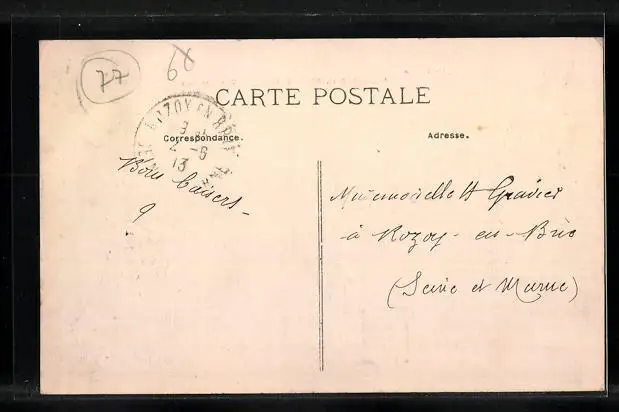 77
60
CARTE POSTALE
ROZOY EN BRIE
13
Correspondance.
Adresse.
Bons baisers -
Mademoiselle H Gravier
à Rozoy-en-Brie
(Seine et Marne)